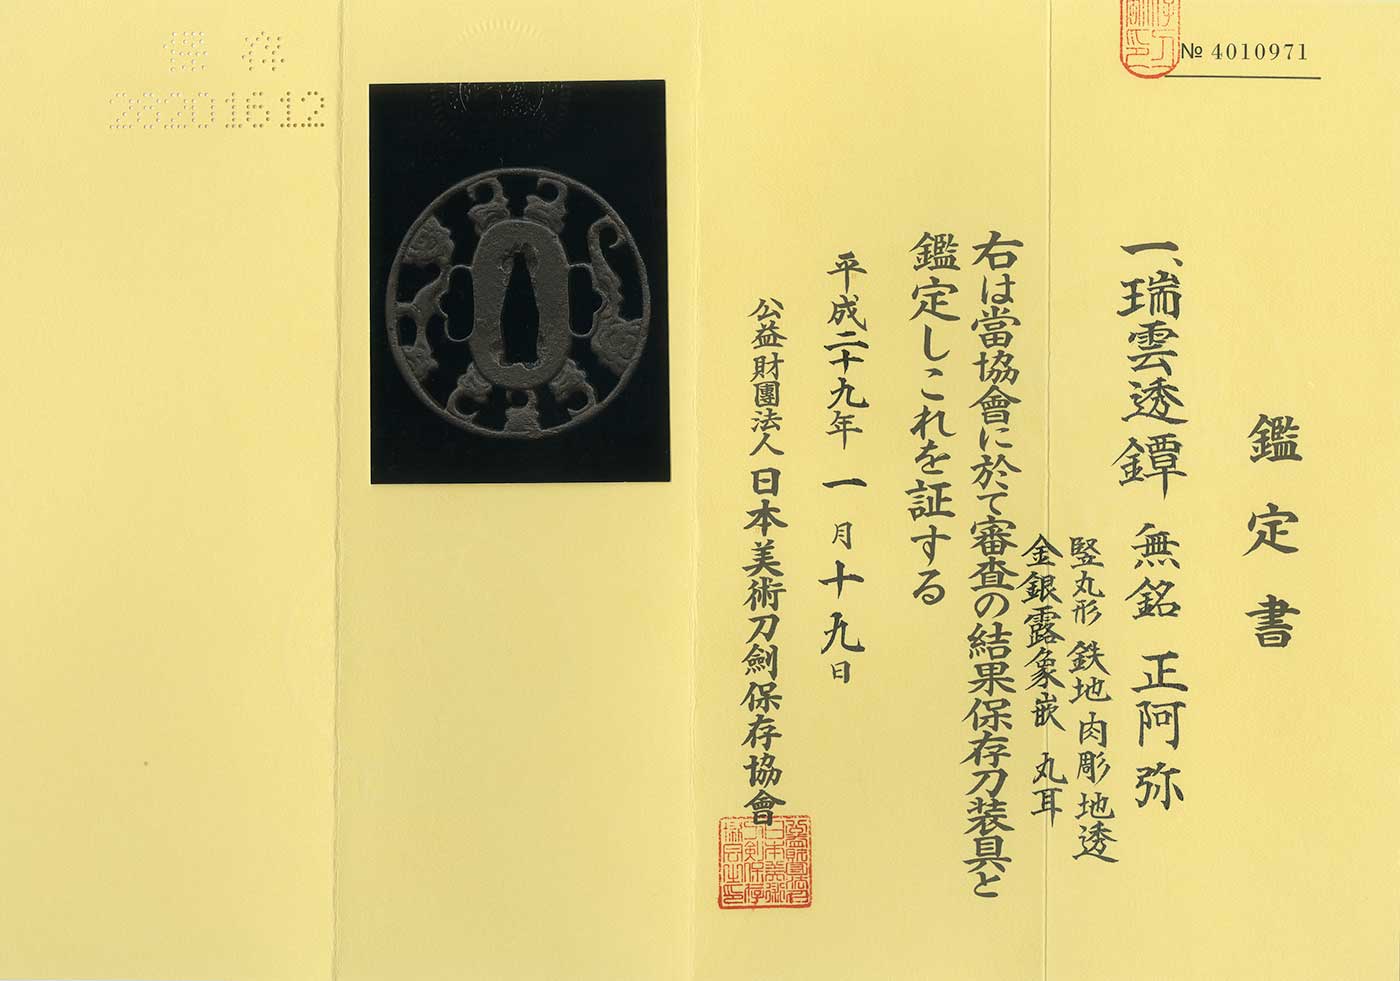 № 4010971
鑑定書
一、瑞雲透鐔 無銘 正阿弥
竪丸形 鉄地 肉彫地透
金銀露象嵌 丸耳
右は當協會に於て審査の結果保存刀装具と
鑑定しこれを証する
平成二十九年 一月十九日
公益財團法人 日本美術刀劍保存協會
保存
28201612